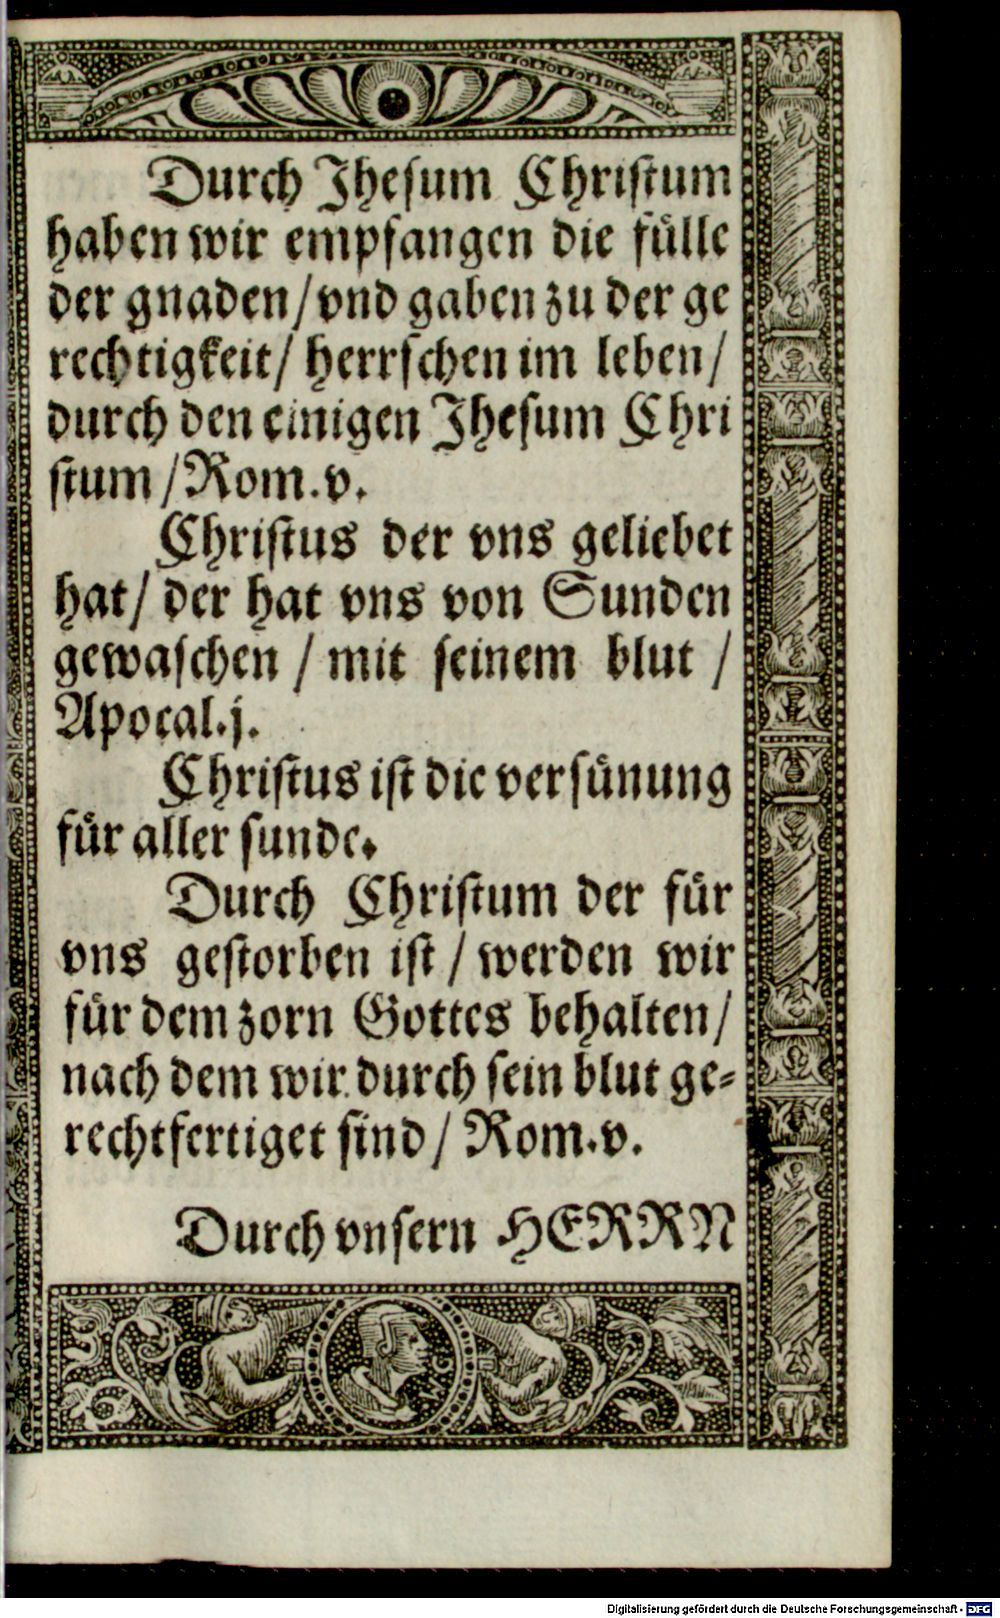 Durch Jhesum Christum
haben wir empfangen die fülle
der gnaden/ vnd gaben zu der ge
rechtigkeit/ herrschen im leben/
durch den einigen Jhesum Chri
stum /Rom.v.
Christus der vns geliebet
hat/ der hat vns von Sunden
gewaschen / mit seinem blut /
Apocal.j.
Christus ist die versünung
für aller sunde.
Durch Christum der für
vns gestorben ist / werden wir
für dem zorn Gottes behalten/
nach dem wir durch sein blut ge⸗
rechtfertiget sind/ Rom.v.
Durch vnsern HERRN
Digitalisierung gefördert durch die Deutsche Forschungsgemeinschaft - DFG